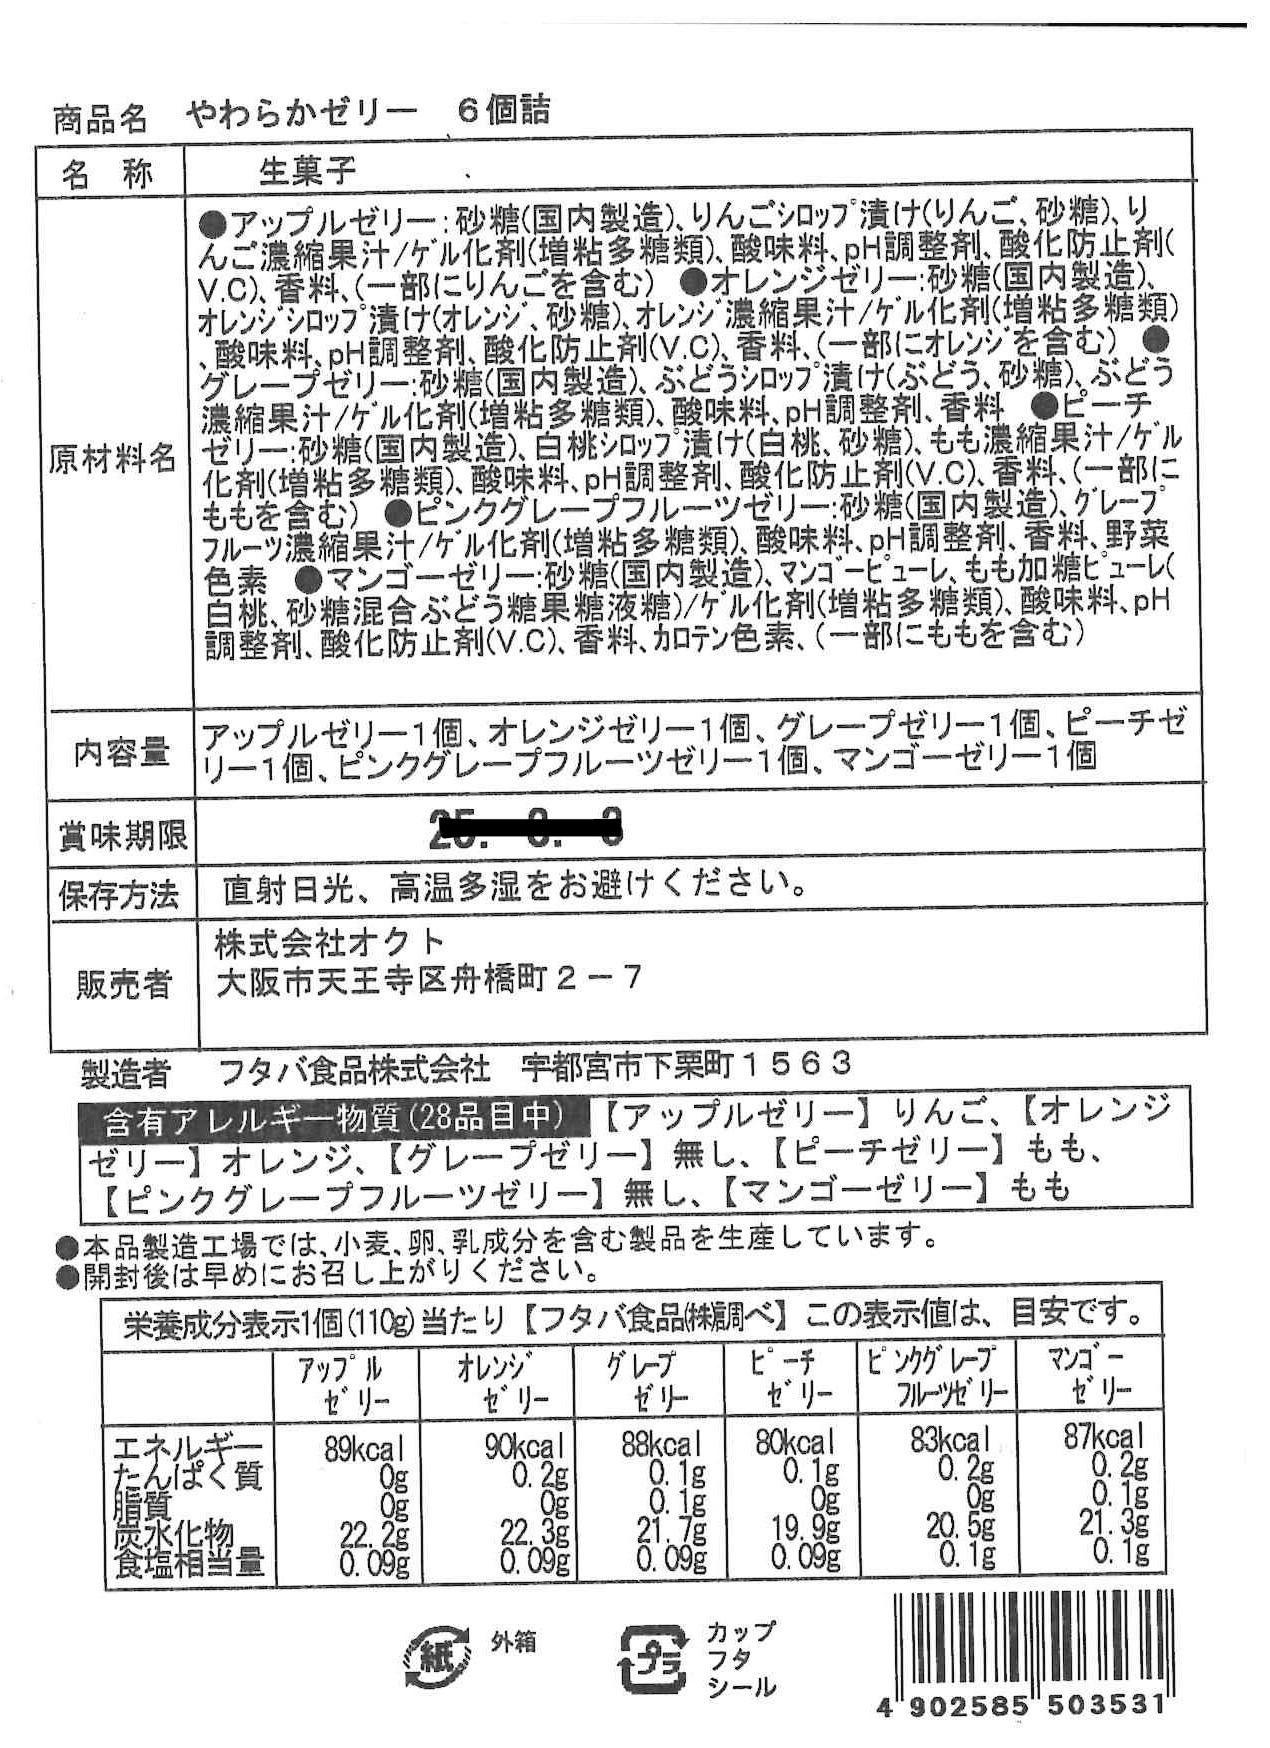 商品名　やわらかゼリー　６個詰
名　称　生菓子
原材料名
●アップルゼリー：砂糖(国内製造)、りんごｼﾛｯﾌﾟ漬け(りんご、砂糖)、り
んご濃縮果汁/ｹﾞﾙ化剤(増粘多糖類)、酸味料、pH調整剤、酸化防止剤(
V.C)、香料、(一部にりんごを含む)　●オレンジゼリー：砂糖(国内製造)、
ｵﾚﾝｼﾞｼﾛｯﾌﾟ漬け(ｵﾚﾝｼﾞ、砂糖)、ｵﾚﾝｼﾞ濃縮果汁/ｹﾞﾙ化剤(増粘多糖類)
、酸味料、pH調整剤、酸化防止剤(V.C)、香料、(一部にｵﾚﾝｼﾞを含む)　●
グレープゼリー：砂糖(国内製造)、ぶどうｼﾛｯﾌﾟ漬け(ぶどう、砂糖)、ぶどう
濃縮果汁/ｹﾞﾙ化剤(増粘多糖類)、酸味料、pH調整剤、香料　●ピーチ
ゼリー：砂糖(国内製造)、白桃ｼﾛｯﾌﾟ漬け(白桃、砂糖)、もも濃縮果汁/ｹﾞﾙ
化剤(増粘多糖類)、酸味料、pH調整剤、酸化防止剤(V.C)、香料、(一部に
ももを含む)　●ピンクグレープフルーツゼリー：砂糖(国内製造)、ｸﾞﾚｰﾌﾟ
ﾌﾙｰﾂ濃縮果汁/ｹﾞﾙ化剤(増粘多糖類)、酸味料、pH調整剤、香料、野菜
色素　●マンゴーゼリー：砂糖(国内製造)、ﾏﾝｺﾞｰﾋﾟｭｰﾚ、もも加糖ﾋﾟｭｰﾚ(
白桃、砂糖混合ぶどう糖果糖液糖)/ｹﾞﾙ化剤(増粘多糖類)、酸味料、pH
調整剤、酸化防止剤(V.C)、香料、ｶﾛﾃﾝ色素、(一部にももを含む)
内容量
アップルゼリー1個、オレンジゼリー1個、グレープゼリー1個、ピーチゼ
リー1個、ピンクグレープフルーツゼリー1個、マンゴーゼリー1個
賞味期限
保存方法　直射日光、高温多湿をお避けください。
販売者
株式会社オクト
大阪市天王寺区舟橋町２－７
製造者　フタバ食品株式会社　宇都宮市下栗町１５６３
含有アレルギー物質(28品目中)【アップルゼリー】りんご、【オレンジ
ゼリー】オレンジ、【グレープゼリー】無し、【ピーチゼリー】もも、
【ピンクグレープフルーツゼリー】無し、【マンゴーゼリー】もも
●本品製造工場では、小麦、卵、乳成分を含む製品を生産しています。
●開封後は早めにお召し上がりください。
栄養成分表示1個(110g)当たり【フタバ食品㈱調べ】この表示値は、目安です。
ｱｯﾌﾟﾙ ｾﾞﾘｰ　ｵﾚﾝｼﾞ ｾﾞﾘｰ　ｸﾞﾚｰﾌﾟ ｾﾞﾘｰ　ﾋﾟｰﾁ ｾﾞﾘｰ　ﾋﾟﾝｸｸﾞﾚｰﾌﾟ ﾌﾙｰﾂｾﾞﾘｰ　ﾏﾝｺﾞｰ ｾﾞﾘｰ
エネルギー　89kcal　90kcal　88kcal　80kcal　83kcal　87kcal
たんぱく質　0g　0.2g　0.1g　0.1g　0.2g　0.2g
脂質　0g　0g　0.1g　0g　0g　0.1g
炭水化物　22.2g　22.3g　21.7g　19.9g　20.5g　21.3g
食塩相当量　0.09g　0.09g　0.09g　0.09g　0.1g　0.1g
紙　外箱
プラ　カップ
フタ
シール
4 902585 503531